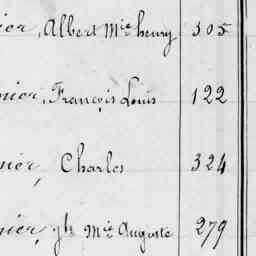 ier, Albert Mie henry 305
nier, François Louis 122
nier, Charles 324
nier, jh Mie Auguste 279